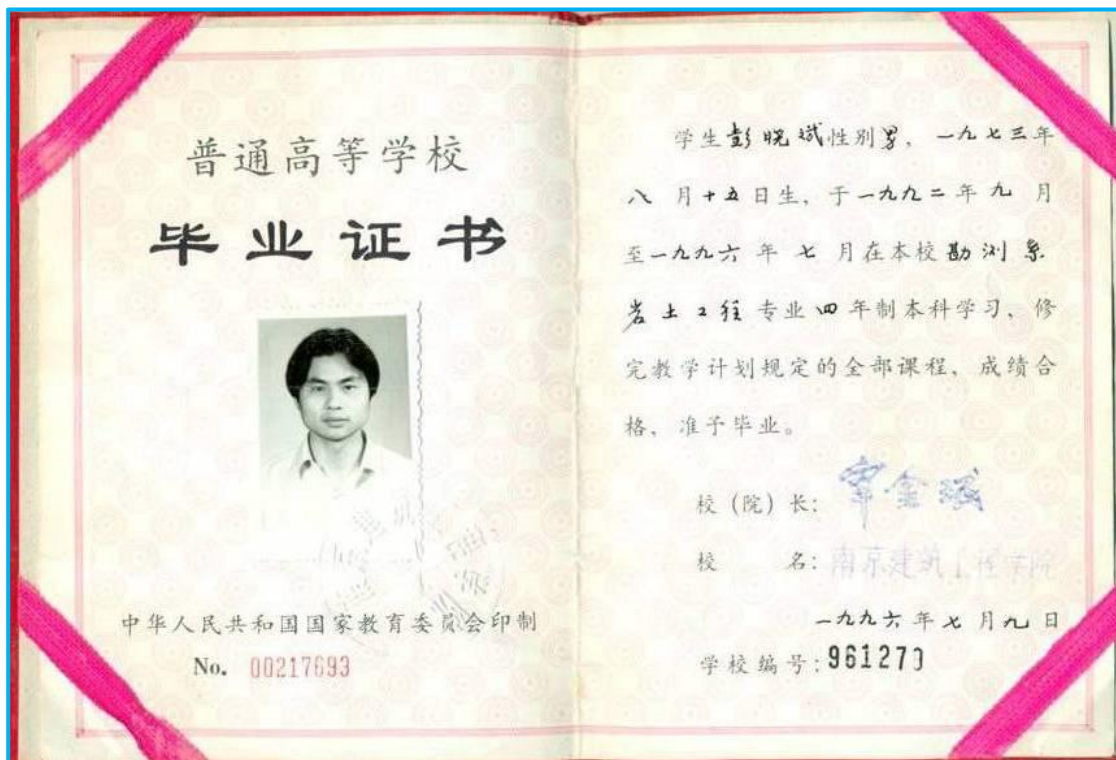 普通高等学校
毕业证书
中华人民共和国国家教育委员会印制
No. 00217693
学生彭晓斌性别男，一九七三年
八月十五日生，于一九九二年九月
至一九九六年七月在本校勘测系
岩土工程专业四年制本科学习，修
完教学计划规定的全部课程，成绩合
格，准予毕业。
校（院）长：
校名：南京建筑工程学院
一九九六年七月九日
学校编号：961270